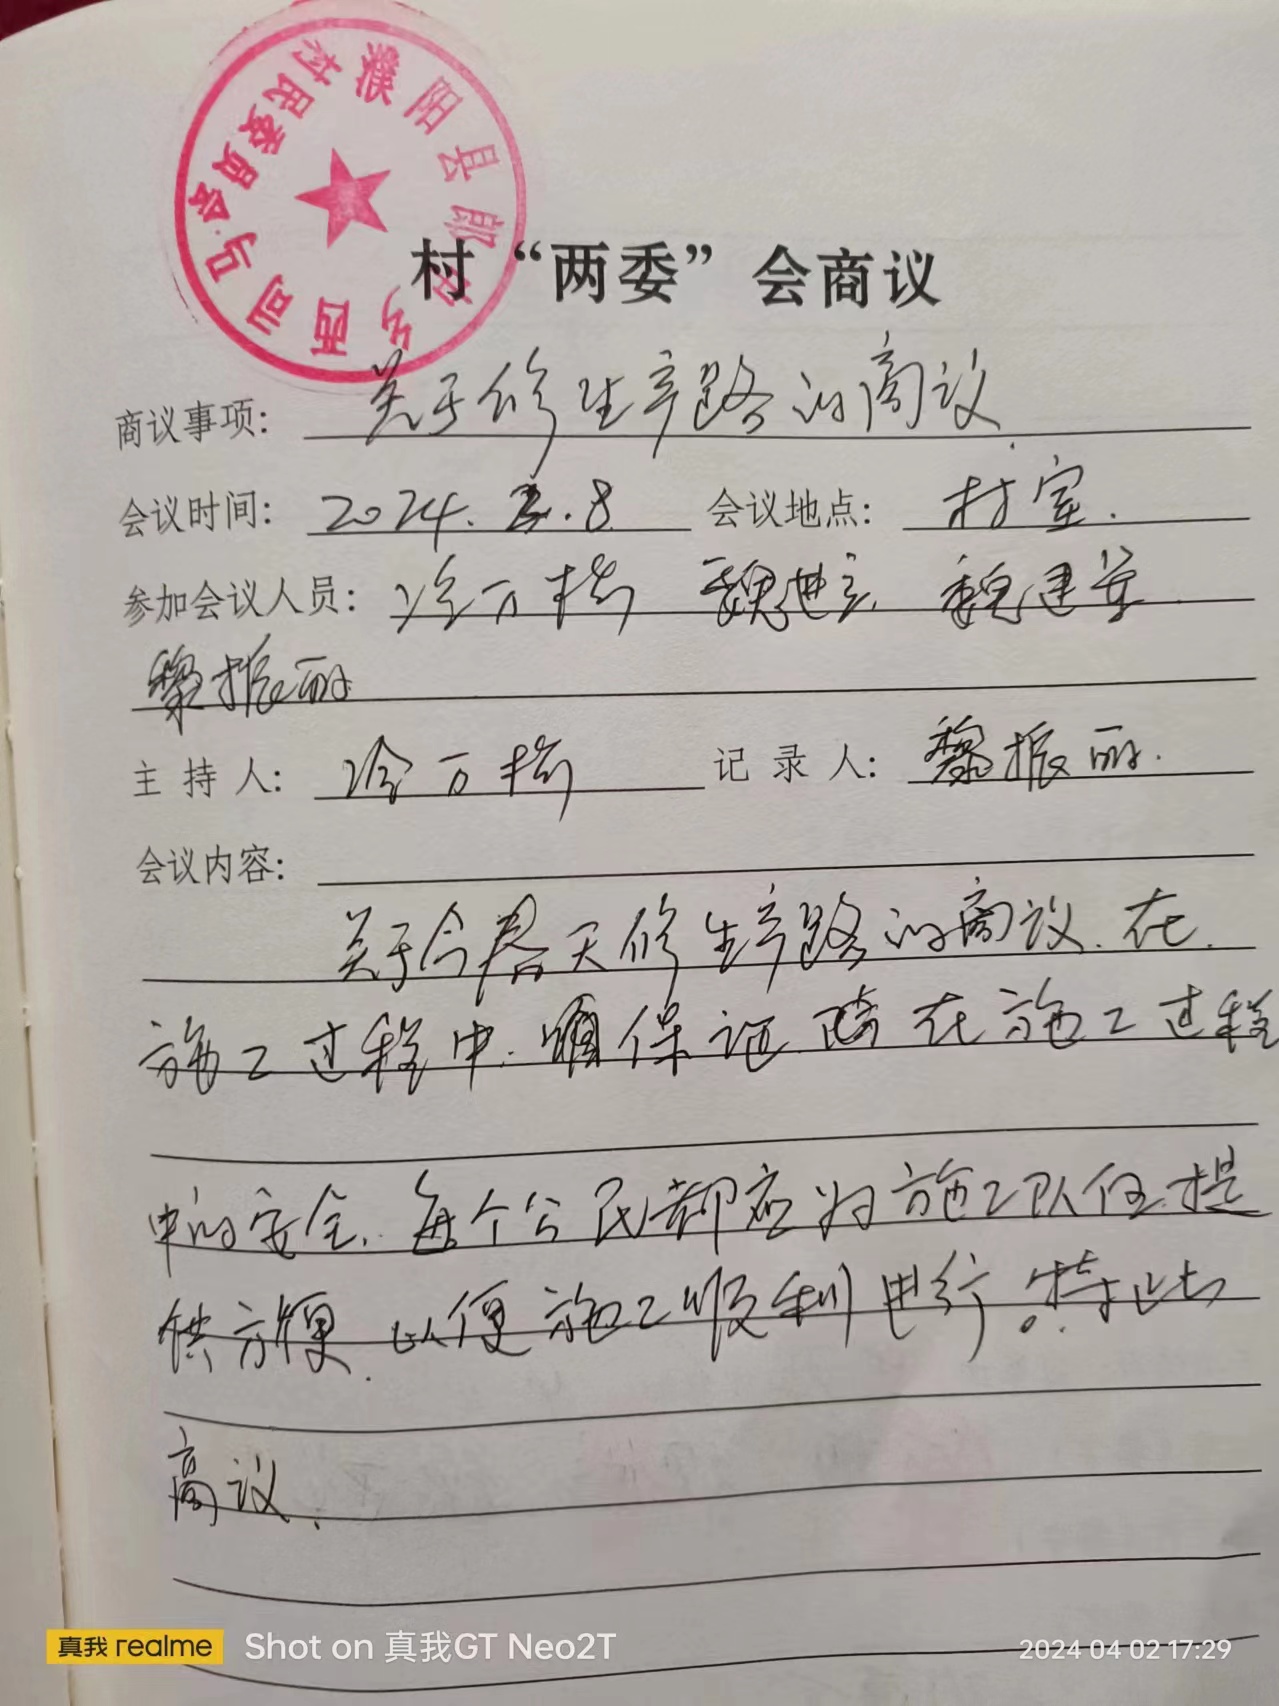 濮阳县郎中乡西司马
村民委员会
村“两委”会商议
商议事项: 关于修生产路的商议
会议时间: 2024. .8. 会议地点: 村室.
参加会议人员: 冷万 魏进 魏建
黎振丽
主 持 人: 冷万 记 录 人: 黎振丽.
会议内容:
关于今春天修生产路的商议. 在
施工过程中. 保证 在施工过程
中的安全. 每个公民都应为施工队伍提
供方便. 以便施工顺利进行. 特此
商议.
真我 realme Shot on 真我GT Neo2T 2024 04 02 17:29